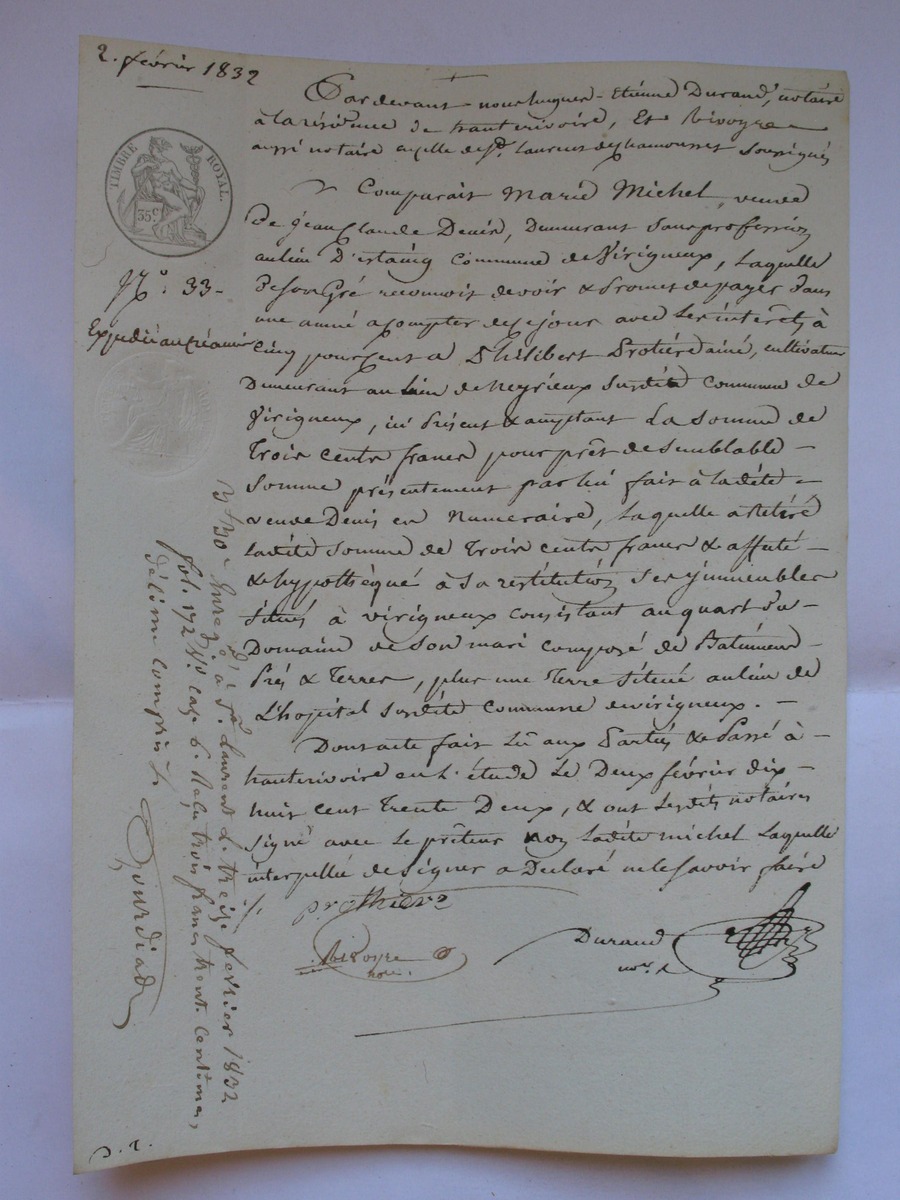 2. février 1832
Pardevant nous hugues-Etienne Durand, notaire
à la résidence de hauterivoire, Et Rivoyre
aussi notaire à celle de St. Laurent de chamousset soussignés
Comparait Marie Michel, veuve
De jean Claude Denis, Demeurant sans profession
au lieu D'estaing Commune de Virigneux, Laquelle
De son Gré reconnoit devoir & Promet de payer Dans
une année à compter de ce jour avec Les intérêts à
Cinq pour cent à Philibert Protière ainé, cultivateur
Demeurant au lieu de neyrieux susdite Commune de
Virigneux, ici Présent & acceptant La somme de
Trois cents francs pour prêt de semblable
somme présentement par lui fait à ladite
veuve Denis en Numeraire, Laquelle a Retiré
Ladite somme de Trois cents francs & affecté
& hypothéqué à sa restitution ses immeubles
situés à virigneux consistant au quart du
Domaine de son mari composé de Batiments
Prés & Terres, plus une Terre située au lieu de
L'hopital susdite Commune de virigneux.
Dont acte fait Lû aux Parties & Passé à
hauterivoire en L'étude Le Deux février dix
huit cent Trente Deux, & ont Lesdits notaires
signé avec Le prêteur non Ladite michel Laquelle
interpellée de signer a Déclaré ne le savoir faire
prothiere
Rivoyre
nore.
Durand
nore.
TIMBRE ROYAL.
35c.
No. 33
Expédié au créancier
Enregé. à St. Laurent L. treize fevrier 1832
fol. 172 Vo. cas. 6. Reçu trois francs trent. centimes,
décime compris
D. 2.